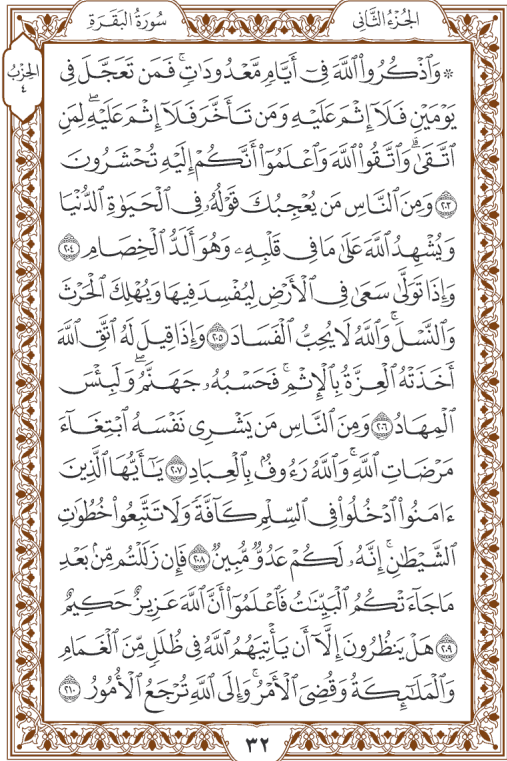 الجزء الثاني
سورة البقرة
الحزب
٤
۞ وَاذْكُرُوا اللَّهَ فِي أَيَّامٍ مَّعْدُودَاتٍ ۚ فَمَن تَعَجَّلَ فِي
يَوْمَيْنِ فَلَا إِثْمَ عَلَيْهِ وَمَن تَأَخَّرَ فَلَا إِثْمَ عَلَيْهِ ۖ لِمَنِ
اتَّقَىٰ ۗ وَاتَّقُوا اللَّهَ وَاعْلَمُوا أَنَّكُمْ إِلَيْهِ تُحْشَرُونَ
٢٠٣ وَمِنَ النَّاسِ مَن يُعْجِبُكَ قَوْلُهُ فِي الْحَيَوٰةِ الدُّنْيَا
وَيُشْهِدُ اللَّهَ عَلَىٰ مَا فِي قَلْبِهِ وَهُوَ أَلَدُّ الْخِصَامِ ٢٠٤
وَإِذَا تَوَلَّىٰ سَعَىٰ فِي الْأَرْضِ لِيُفْسِدَ فِيهَا وَيُهْلِكَ الْحَرْثَ
وَالنَّسْلَ ۗ وَاللَّهُ لَا يُحِبُّ الْفَسَادَ ٢٠٥ وَإِذَا قِيلَ لَهُ اتَّقِ اللَّهَ
أَخَذَتْهُ الْعِزَّةُ بِالْإِثْمِ ۚ فَحَسْبُهُ جَهَنَّمُ ۖ وَلَبِئْسَ
الْمِهَادُ ٢٠٦ وَمِنَ النَّاسِ مَن يَشْرِي نَفْسَهُ ابْتِغَاءَ
مَرْضَاتِ اللَّهِ ۗ وَاللَّهُ رَءُوفٌ بِالْعِبَادِ ٢٠٧ يَٰأَيُّهَا الَّذِينَ
ءَامَنُوا ادْخُلُوا فِي السِّلْمِ كَافَّةً وَلَا تَتَّبِعُوا خُطُوَٰتِ
الشَّيْطَٰنِ ۚ إِنَّهُ لَكُمْ عَدُوٌّ مُّبِينٌ ٢٠٨ فَإِن زَلَلْتُم مِّن بَعْدِ
مَا جَاءَتْكُمُ الْبَيِّنَٰتُ فَاعْلَمُوا أَنَّ اللَّهَ عَزِيزٌ حَكِيمٌ
٢٠٩ هَلْ يَنظُرُونَ إِلَّا أَن يَأْتِيَهُمُ اللَّهُ فِي ظُلَلٍ مِّنَ الْغَمَامِ
وَالْمَلَٰئِكَةُ وَقُضِيَ الْأَمْرُ ۚ وَإِلَى اللَّهِ تُرْجَعُ الْأُمُورُ ٢١٠
٣٢